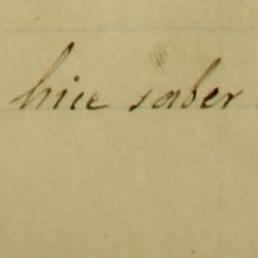 hice saber